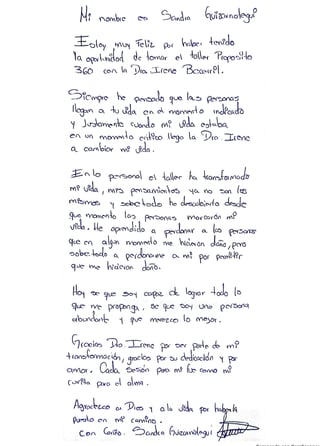 Mi nombre es Sandra Guizarnotegui
Estoy muy Feliz por haber tenido
la oportunidad de tomar el taller Proposito
360 con la Dra. Irene
Siempre he pensado que las personas
llegan a tu vida en el momento indicado
y Justamente cuando mi vida estaba
en un momento critico llego la Dra. Irene
a cambiar mi vida.
En lo personal el taller ha transformado
mi vida, mis pensamientos ya no son los
mismos y sobretodo he descubierto desde
que momento las personas marcaron mi
vida. He aprendido a perdonar a las personas
que en algun momento me hicieron daño, pero
sobretodo a perdonarme a mi por permitir
que me hicieran daño.
Hoy se que soy capaz de lograr todo lo
que me proponga, se que soy una persona
abundante y que merezco lo mejor.
Gracias Dra. Irene por ser parte de mi
transformación, gracias por su dedicación y por
amor. Cada sesión para mi fue como mi
para el alma.
Agradezco a Dios y a la vida por haberla
puesto en mi camino.
Con Cariño. Sandra Guizarnotegui